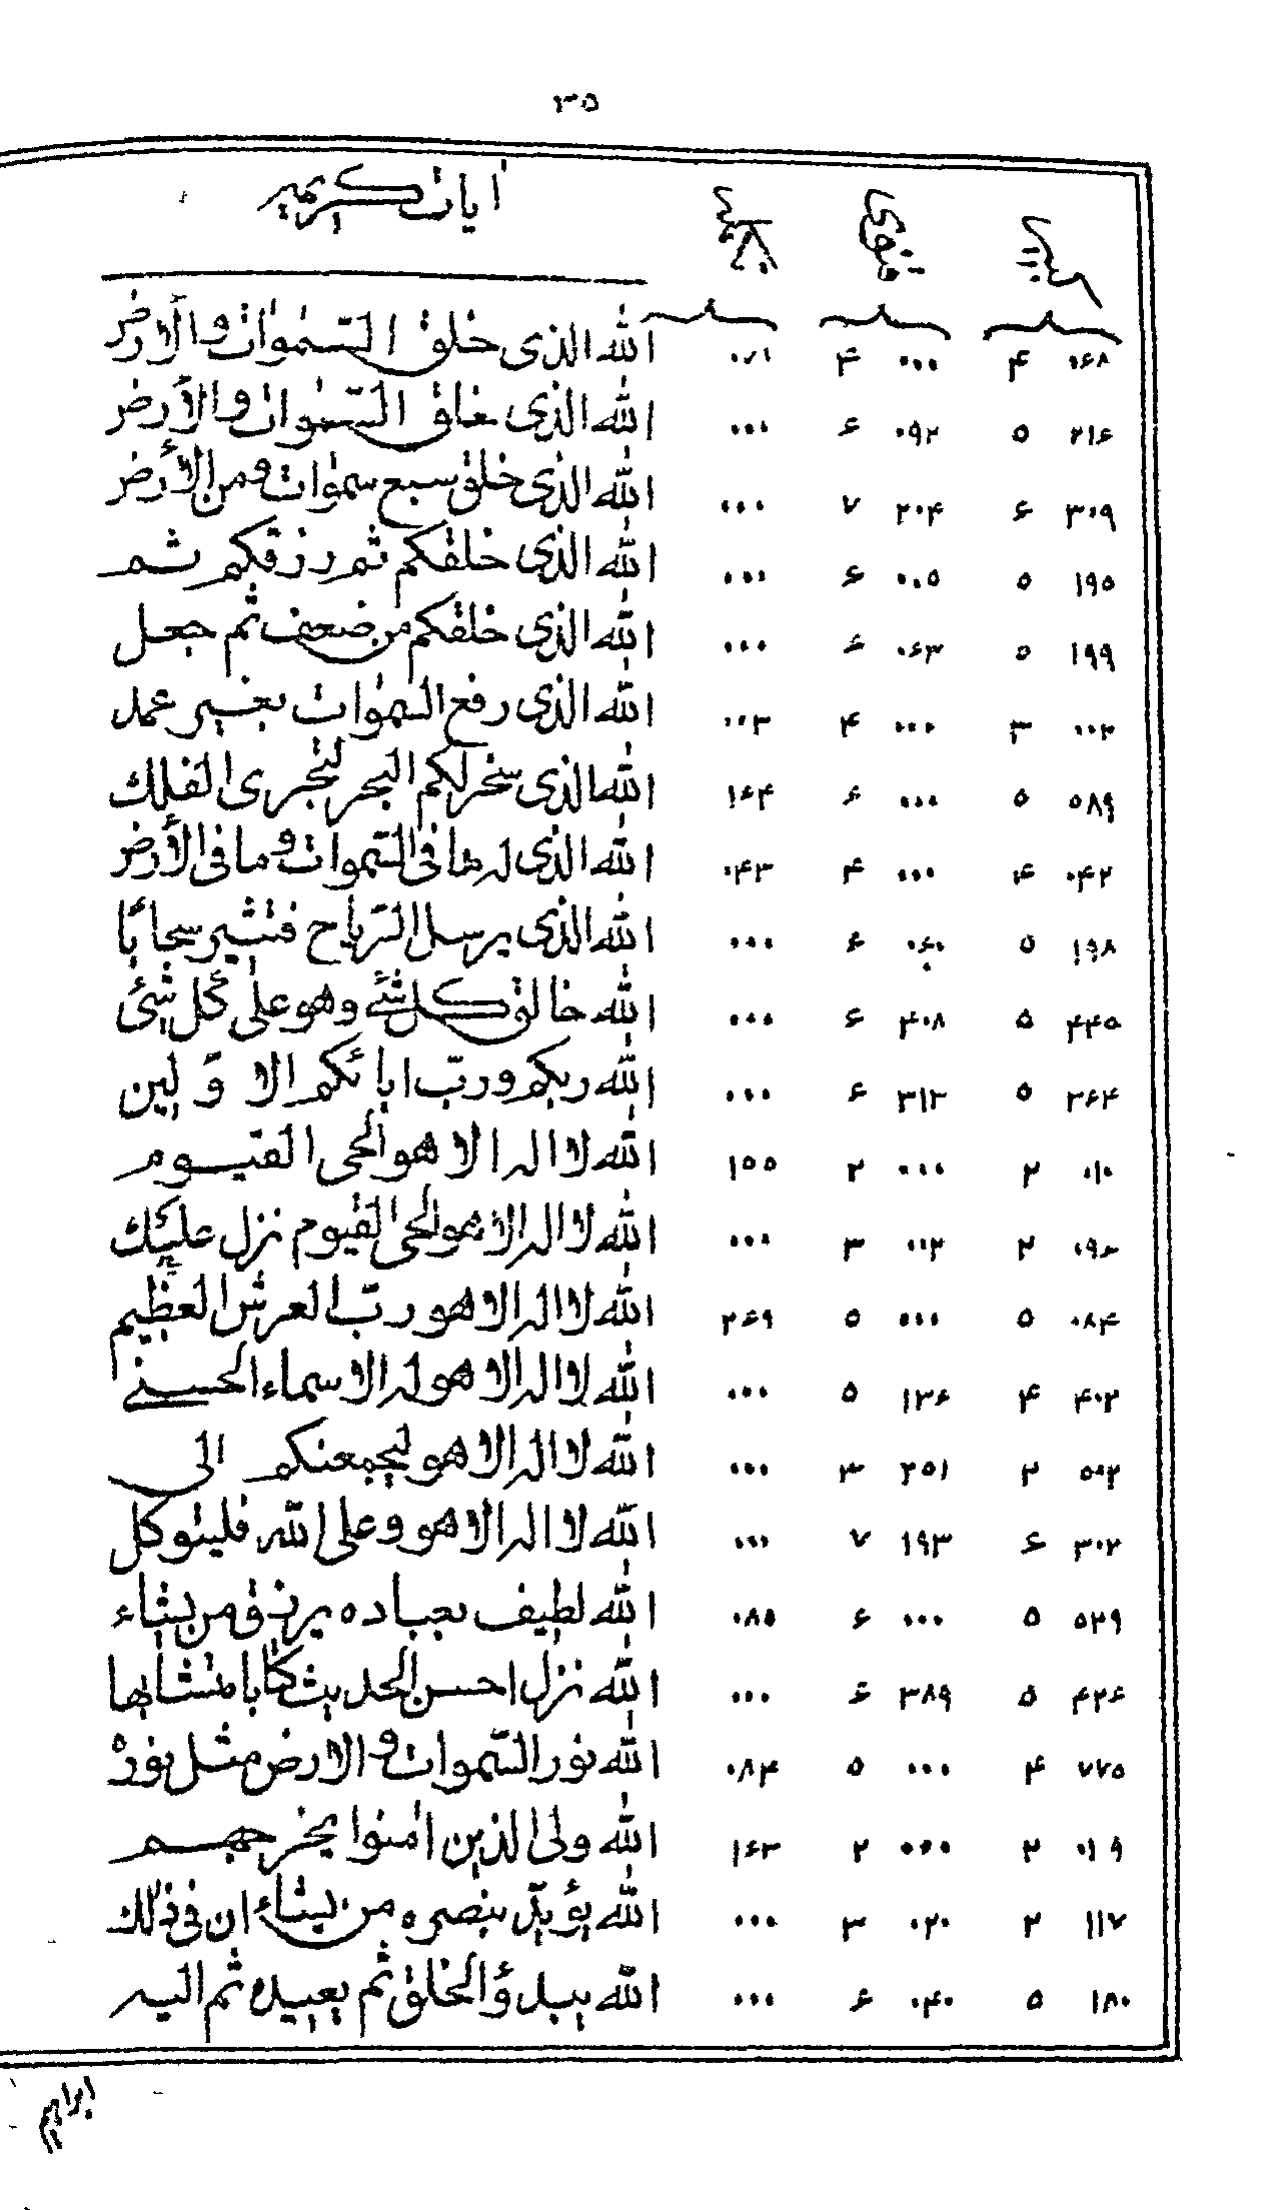 ۳۵
اٰیات کریمہ
۰۶۸ ۴ ۰۰۰ ۴ ۰۷۱ اللّٰه الذی خلق السمٰوات والأرض
۲۱۶ ۵ ۰۹۲ ۶ ۰۰۰ اللّٰه الذی خلق السمٰوات والأرض
۳۰۹ ۶ ۲۰۴ ۷ ۰۰۰ اللّٰه الذی خلق سبع سمٰوات ومن الأرض
۱۹۵ ۵ ۰۰۵ ۶ ۰۰۰ اللّٰه الذی خلقکم ثم رزقکم ثم
۱۹۹ ۵ ۰۶۳ ۶ ۰۰۰ اللّٰه الذی خلقکم من ضعف ثم جعل
۰۰۲ ۳ ۰۰۰ ۴ ۰۰۳ اللّٰه الذی رفع السمٰوات بغیر عمد
۵۸۹ ۵ ۰۰۰ ۶ ۱۶۴ اللّٰه الذی سخر لکم البحر لتجری الفلك
۰۴۲ ۴ ۰۰۰ ۴ ۰۴۳ اللّٰه الذی له ما فی السّموات وما فی الأرض
۱۹۸ ۵ ۰۶۰ ۶ ۰۰۰ اللّٰه الذی یرسل الرّیاح فتثیر سحابًا
۴۴۵ ۵ ۴۰۸ ۶ ۰۰۰ اللّٰه خالق کل شئ وهو علی کل شئ
۳۶۴ ۵ ۳۱۳ ۶ ۰۰۰ اللّٰه ربکم وربّ ابائکم الاوّلین
۰۱۰ ۲ ۰۰۰ ۲ ۱۵۵ اللّٰه لا اله الا هو الحی القیوم
۲ ۰۰۲ ۳ ۰۰۰ اللّٰه لا اله الا هو الحی القیوم نزل علیك
۰۸۴ ۵ ۰۰۰ ۵ ۲۶۹ اللّٰه لا اله الا هو ربّ العرش العظیم
۴۰۲ ۴ ۱۳۶ ۵ ۰۰۰ اللّٰه لا اله الا هو له الاسماء الحسنی
۵۰۲ ۲ ۲۵۱ ۳ ۰۰۰ اللّٰه لا اله الا هو لیجمعنکم الی
۳۰۲ ۶ ۱۹۳ ۷ ۰۰۰ اللّٰه لا اله الا هو وعلی اللّٰه فلیتوکل
۵۲۹ ۵ ۰۰۰ ۶ ۰۸۵ اللّٰه لطیف بعباده یرزق من یشاء
۴۲۶ ۵ ۳۸۹ ۶ ۰۰۰ اللّٰه نزل احسن الحدیث کتابا متشابها
۷۷۵ ۴ ۰۰۰ ۵ ۰۸۴ اللّٰه نور السّموات والارض مثل نوره
۰۱۹ ۲ ۰۰۰ ۲ ۱۶۳ اللّٰه ولی الذین اٰمنوا یخرجهم
۱۱۷ ۲ ۰۲۰ ۳ ۰۰۰ اللّٰه یؤیّد بنصره من یشاء ان فی ذٰلك
۱۸۰ ۵ ۰۴۰ ۶ ۰۰۰ اللّٰه یبدؤ الخلق ثم یعیده ثم الیه
ابراهیم